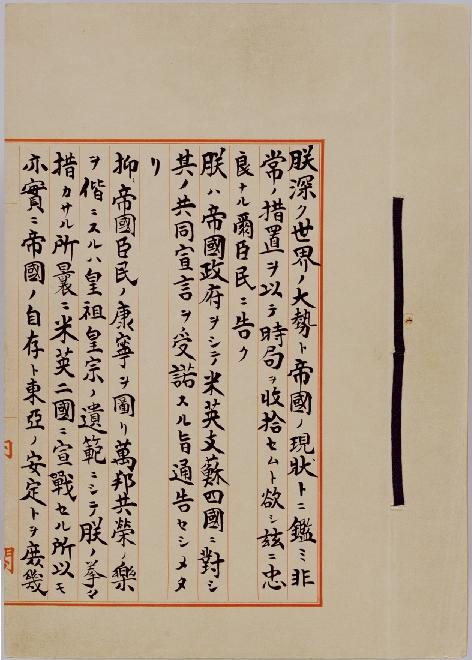 朕深ク世界ノ大勢ト帝國ノ現狀トニ鑑ミ非
常ノ措置ヲ以テ時局ヲ收拾セムト欲シ玆ニ忠
良ナル爾臣民ニ告ク
朕ハ帝國政府ヲシテ米英支蘇四國ニ對シ
其ノ共同宣言ヲ受諾スル旨通告セシメタ
リ
抑帝國臣民ノ康寧ヲ圖リ萬邦共榮ノ樂
ヲ偕ニスルハ皇祖皇宗ノ遺範ニシテ朕ノ拳々
措カサル所曩ニ米英二國ニ宣戰セル所以モ
亦實ニ帝國ノ自存ト東亞ノ安定トヲ庶幾
内閣